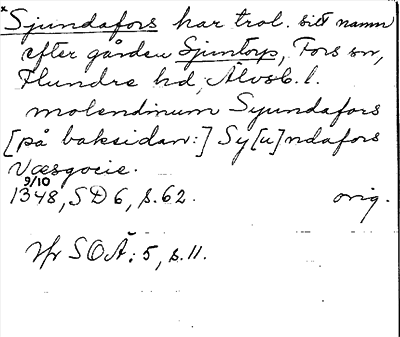 *Sjundafors har trol. sitt namn
efter gården Sjuntorp, Fors sn,
Flundre hd, Älvsb. l.
molendinum Syundafors
[på baksidan:] Sy[u]ndafors
Væsgocie.
9/10
1348, SD 6, s. 62. orig.
Jfr SOÄ: 5, s. 11.